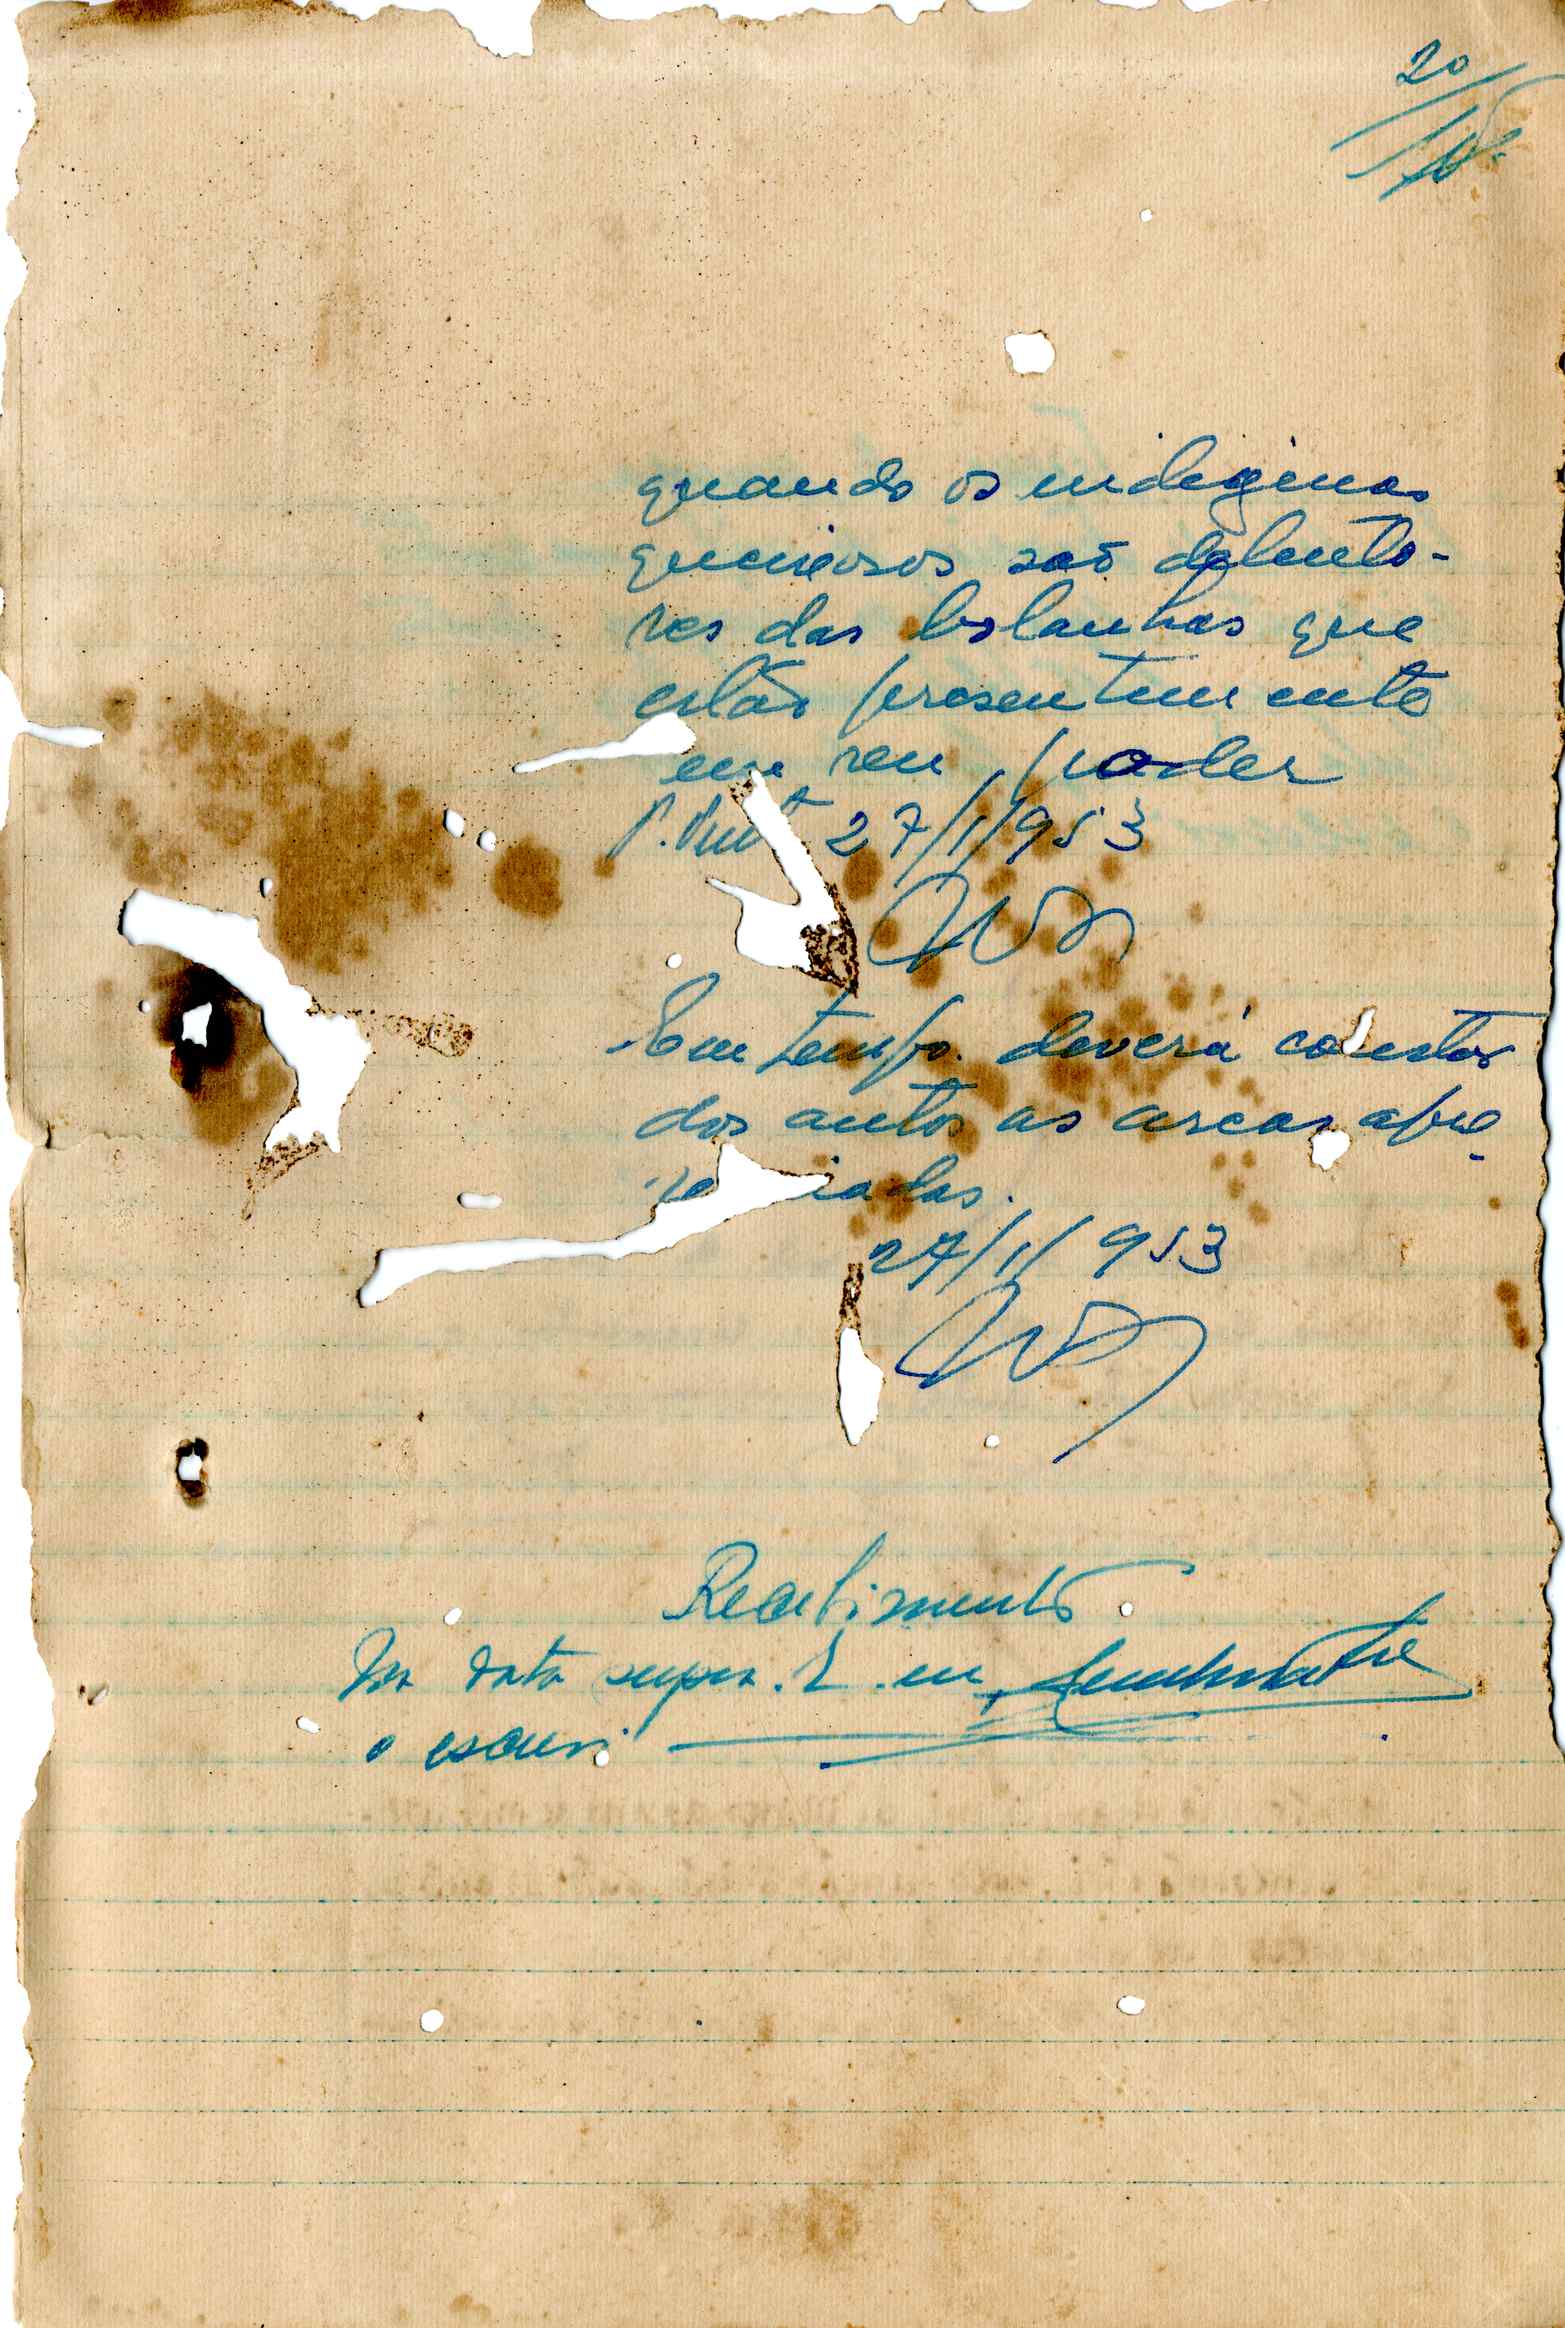 20
quando os indigenas
queixosos são detento-
res das bolanhas que
estão presentemente
em seu poder
27/1/953
Em tempo deverá constar
dos autos as areas apre
27/1/953
Recebimento
Na data supra. E eu
o escrevi